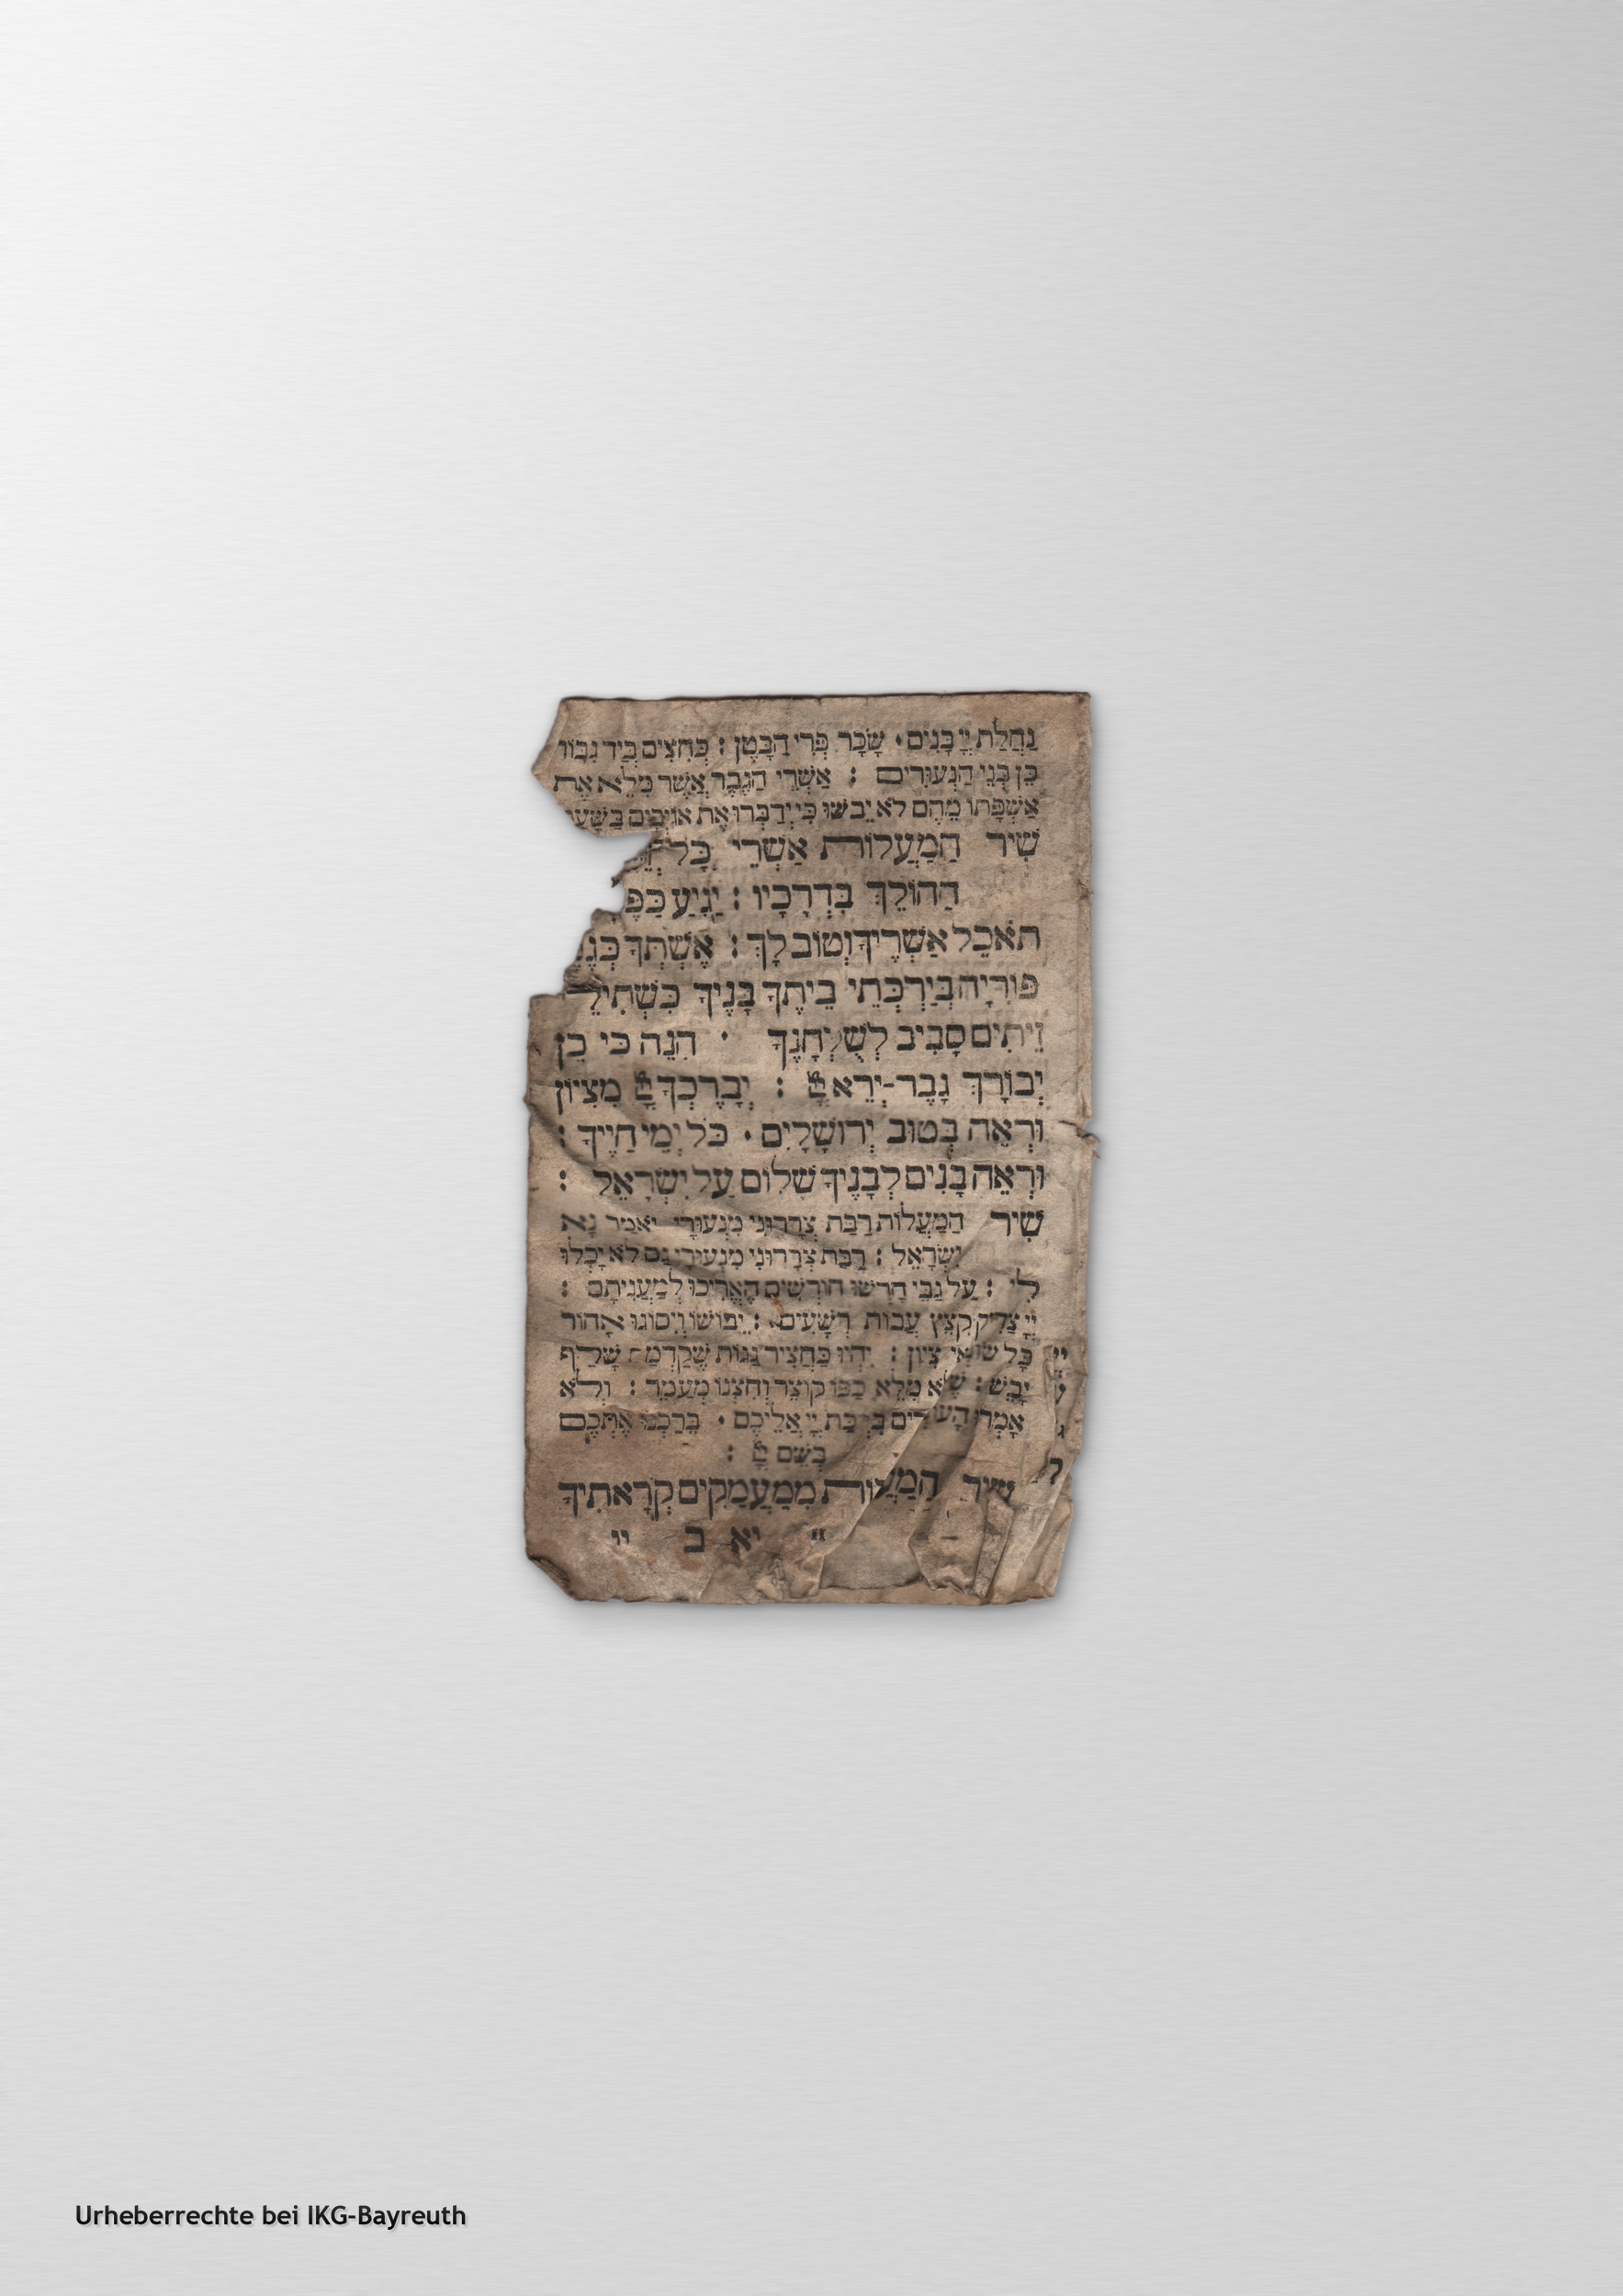 נַחֲלַת יְיָ בָּנִים · שָׂכָר פְּרִי הַבָּטֶן : כְּחִצִּים בְּיַד גִבּוֹר
כֵּן בְּנֵי הַנְּעוּרִים : אַשְׁרֵי הַגֶּבֶר אֲשֶׁר מִלֵּא אֶת
אַשְׁפָּתוֹ מֵהֶם לֹא יֵבשׁוּ כִּי יְדַבְּרוּ אֶת אוֹיְבִים
שִׁיר הַמַּעֲלוֹת אַשְׁרֵי כָּל
הַהוֹלֵךְ בִּדְרָכָיו : יְגִיעַ
תֹאכֵל אַשְׁרֶיךָ וְטוֹב לָךְ : אֶשְׁתְּךָ
פּוֹרִיָּה בְּיַרְכְּתֵי בֵיתֶךָ בָּנֶיךָ
זֵיתִים סָבִיב לְשֻׁלְחָנֶךָ · הִנֵּה כִי כֵן
יְבוֹרָךְ גָּבֶר־יְרֵא יְיָ : יְבָרֶכְךָ יְיָ מִצִיּוֹן
וּרְאֵה בְּטוּב יְרוּשָׁלָיִם · כֹּל יְמֵי חַיֶּיךָ :
וּרְאֵה בָנִים לְבָנֶיךָ שָׁלוֹם עַל יִשְׂרָאֵל :
שִׁיר הַמַּעֲלוֹת רַבַּת צְרָרוּנִי מִנְּעוּרָי יֹאמַר נָא
יִשְׂרָאֵל : רַבַּת צְרָרוּנִי מִנְּעוּרָי גַּם לֹא יָכְלוּ
לִי : עַל גַּבִּי חָרְשׁוּ חוֹרְשִׁים הֶאֱרִיכוּ לְמַעֲנִיתָם :
יְיָ צַדִּיק קִצֵּץ עֲבוֹת רְשָׁעִים : יֵבוֹשׁוּ וְיִסּוֹגוּ אָחוֹר
כָּל שׂוֹנְאֵי צִיּוֹן : יִהְיוּ כַּחֲצִיר גַּגּוֹת שֶׁקַּדְמַת שָׁלַף
יָבֵשׁ : שֶׁלֹּא מִלֵּא כַפּוֹ קוֹצֵר וְחִצְנוֹ מְעַמֵּר : וְלֹא
אָמְרוּ הָעֹבְרִים בִּרְכַּת יְיָ אֲלֵיכֶם · בֵּרַכְנוּ אֶתְכֶם
בְּשֵׁם יְיָ :
שִׁיר הַמַּעֲלוֹת מִמַּעֲמַקִּים קְרָאתִיךָ
Urheberrechte bei IKG-Bayreuth